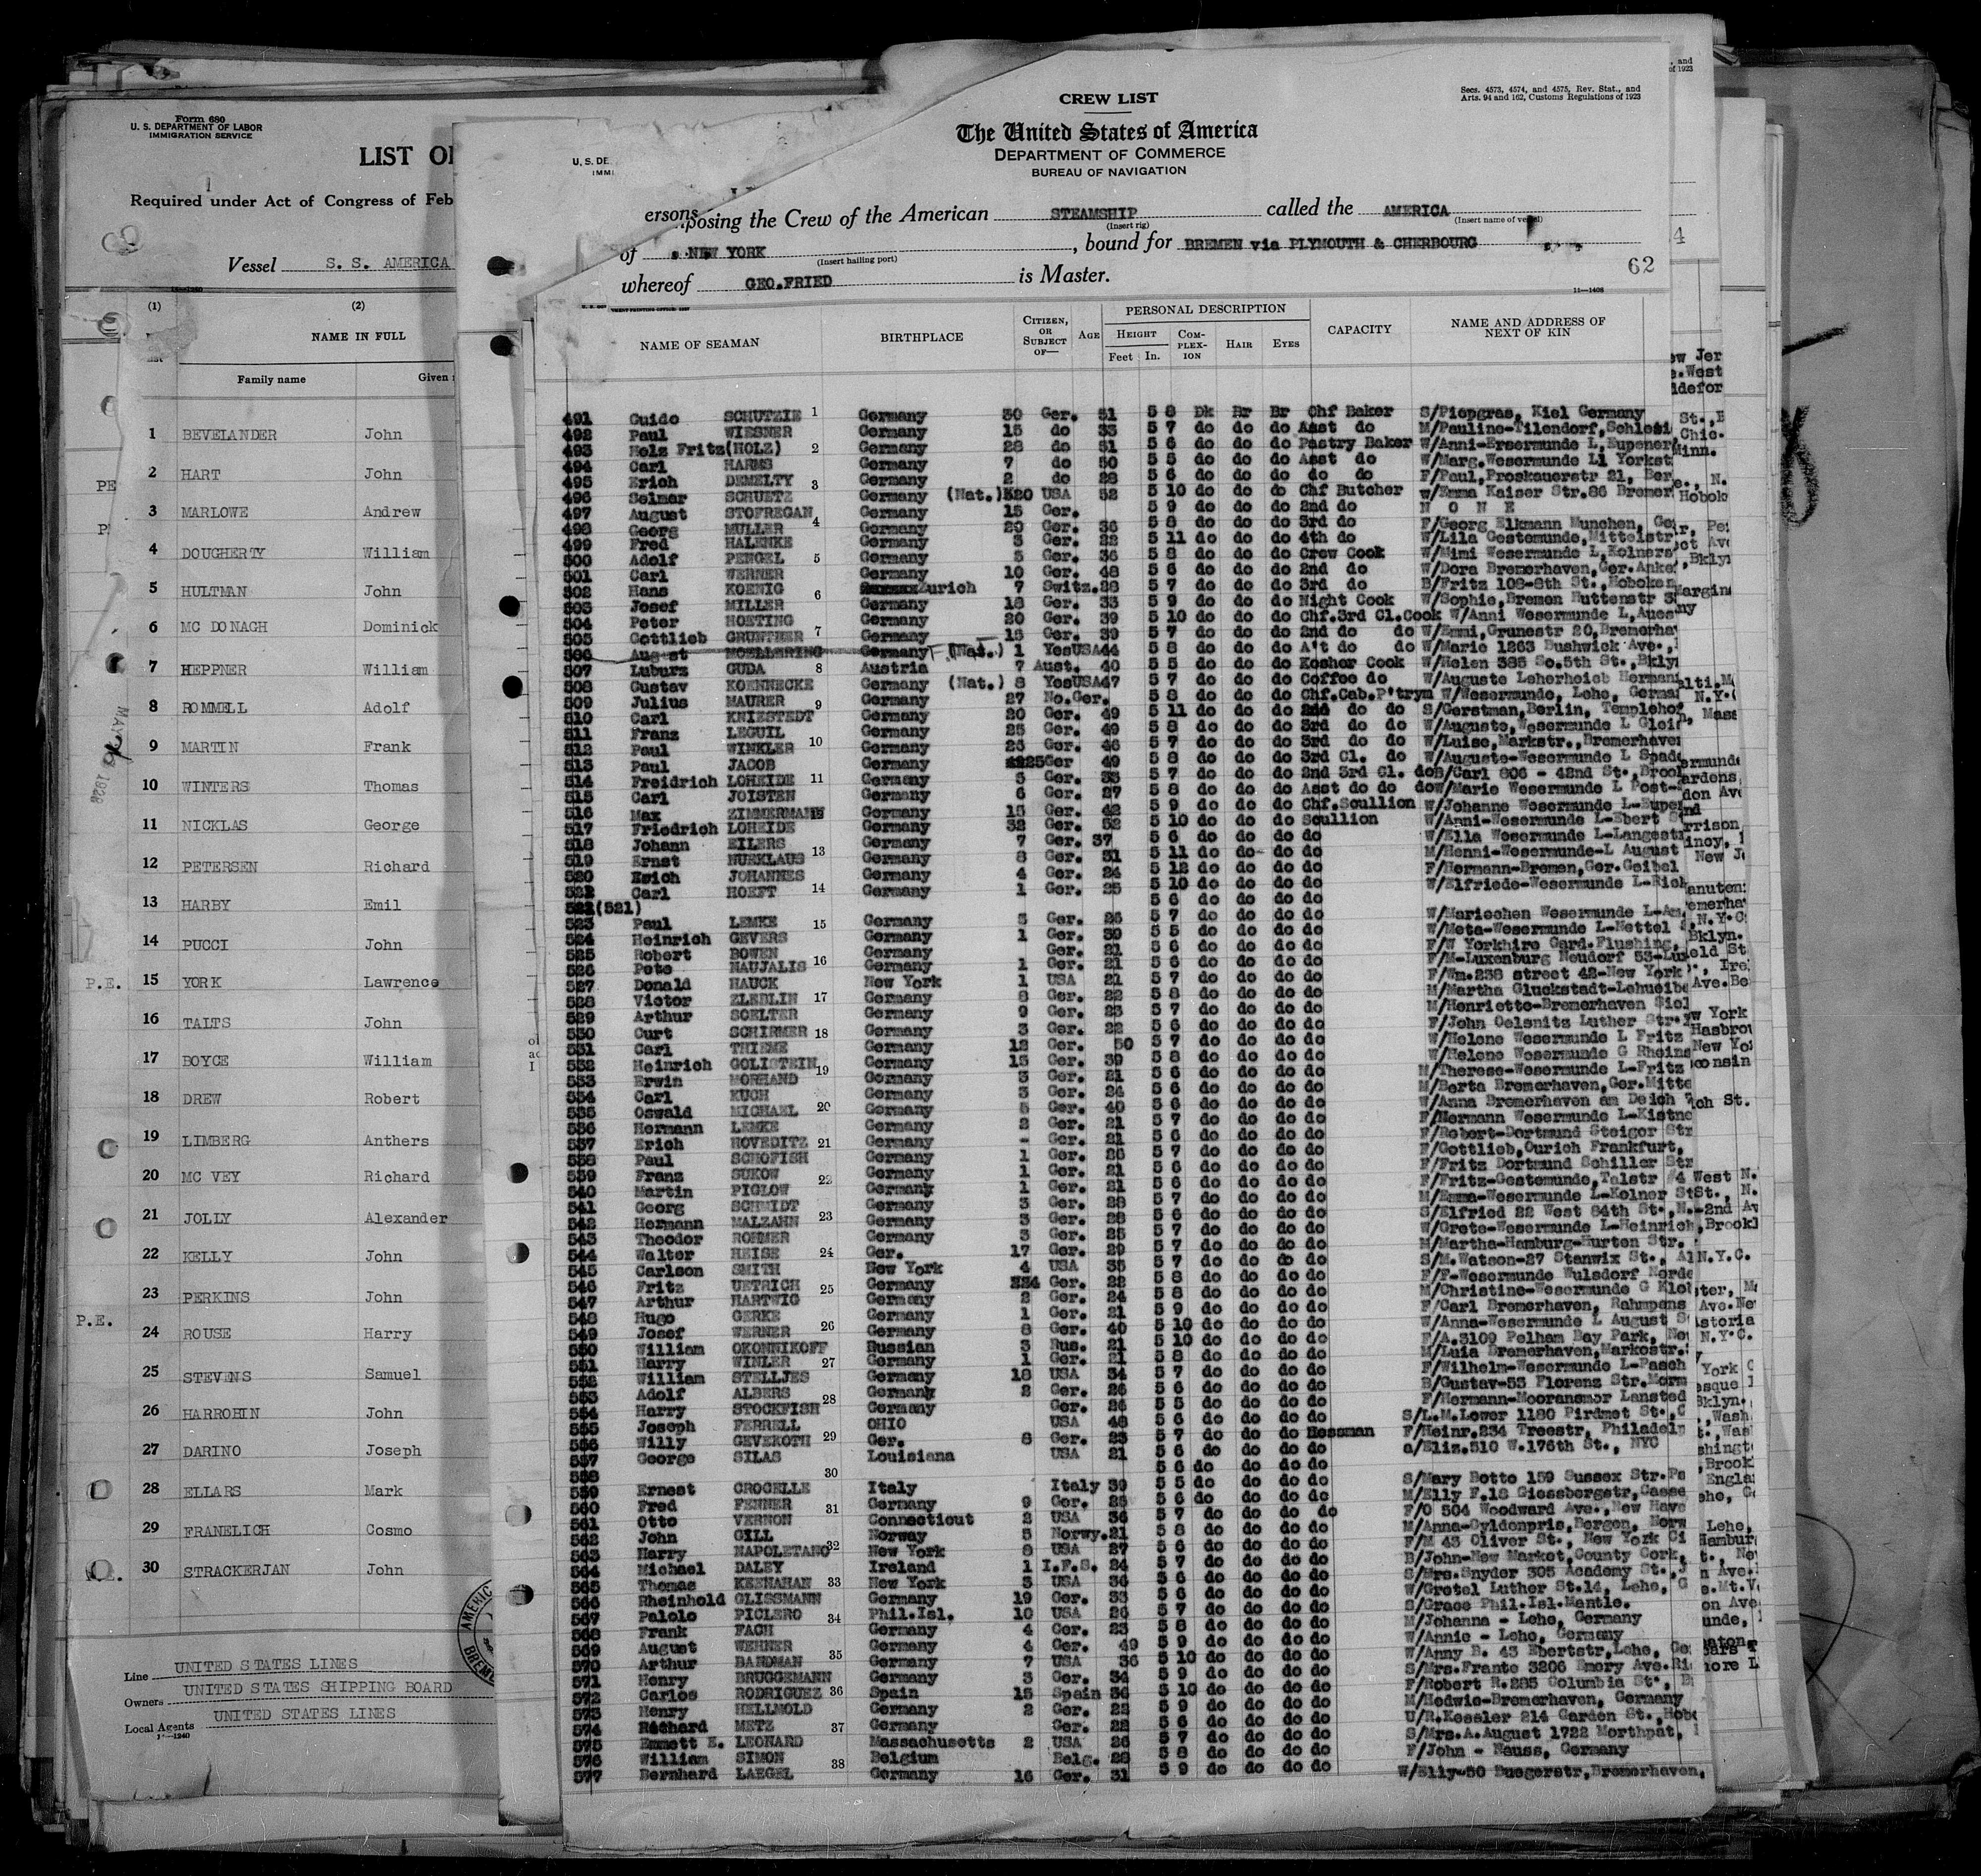 Form 680
U. S. DEPARTMENT OF LABOR
IMMIGRATION SERVICE
LIST OF
Required under Act of Congress of Feb
Vessel S. S. AMERICA
(1) (2)
NAME IN FULL
Family name Given
1 BEVELANDER John
2 HART John
3 MARLOWE Andrew
4 DOUGHERTY William
5 HULTMAN John
6 MC DONAGH Dominick
7 HEPPNER William
8 ROMMELL Adolf
9 MARTIN Frank
10 WINTERS Thomas
11 NICKLAS George
12 PETERSEN Richard
13 HARBY Emil
14 PUCCI John
P.E. 15 YORK Lawrence
16 TALTS John
17 BOYCE William
18 DREW Robert
19 LIMBERG Anthers
20 MC VEY Richard
21 JOLLY Alexander
22 KELLY John
23 PERKINS John
P.E. 24 ROUSE Harry
25 STEVENS Samuel
26 HARROHIN John
27 DARINO Joseph
28 ELLARS Mark
29 FRANELICH Cosmo
30 STRACKERJAN John
Line UNITED STATES LINES
Owners UNITED STATES SHIPPING BOARD
Local Agents UNITED STATES LINES
CREW LIST
Secs. 4573, 4574, and 4575, Rev. Stat., and
Arts. 94 and 162, Customs Regulations of 1923
The United States of America
DEPARTMENT OF COMMERCE
BUREAU OF NAVIGATION
ersons posing the Crew of the American STEAMSHIP called the AMERICA
(Insert rig) (Insert name of vessel)
of NEW YORK , bound for BREMEN via PLYMOUTH & CHERBOURG
(Insert hailing port)
whereof GEO.FRIED is Master.
62
11—1408
NAME OF SEAMAN BIRTHPLACE CITIZEN, OR SUBJECT OF— AGE PERSONAL DESCRIPTION CAPACITY NAME AND ADDRESS OF NEXT OF KIN
HEIGHT COMPLEXION HAIR EYES
Feet In.
491 Guido SCHUTZIE 1 Germany 30 Ger. 51 5 8 Dk Br Br Chf Baker S/Piepgras, Kiel Germany
492 Paul WIESNER Germany 15 do 33 5 7 do do do Asst do M/Pauline-Tilendorf, Schlesi
493 Holz Fritz(HOLZ) 2 Germany 28 do 51 5 6 do do do Pastry Baker W/Anni-Ersermunde L, Eupener
494 Carl HARMS Germany 7 do 50 5 5 do do do Asst do W/Marg. Wesermunde L1 Yorkst
495 Erich DEMELTY 3 Germany 2 do 28 5 6 do do do do do F/Paul, Proskauerstr 21, Ber
496 Selmar SCHUETZ Germany (Nat.) USA 52 5 10 do do do Chf Butcher w/Emma Kaiser Str.86 Bremer
497 August STOFREGAN Germany 15 Ger. 5 9 do do do 2nd do N O N E
498 Georg MULLER 4 Germany 20 Ger. 36 5 8 do do do 3rd do F/Georg Elkmann Munchen, Ge
499 Fred HALENKE Germany 3 Ger. 22 5 11 do do do 4th do W/Lila Gestemunde, Mittelstr
500 Adolf PENGEL 5 Germany 5 Ger. 36 5 8 do do do Crew Cook W/Mimi Wesermunde L, Kolners
501 Carl WERNER Germany 10 Ger. 48 5 6 do do do 2nd do W/Dora Bremerhaven, Ger. Anke
502 Hans KOENIG 6 Zurich 7 Switz. 28 5 7 do do do 3rd do B/Fritz 108-8th St., Hoboken
503 Josef MILLER Germany 18 Ger. 33 5 9 do do do Night Cook W/Sophie, Bremen Huttenstr 3
504 Peter HOETING Germany 20 Ger. 39 5 10 do do do Chf.3rd Cl.Cook W/Anni Wesermunde L, Aues
505 Gottlieb GRUNTHER 7 Germany 15 Ger. 39 5 7 do do do 2nd do do W/Emmi, Grunestr 20, Bremerha
506 August MOELLERING Germany (Nat.) 1 YesUSA 44 5 8 do do do A't do do W/Marie 1263 Bushwick Ave.,
507 Luburz GUDA 8 Austria 7 Aust. 40 5 5 do do do Kosher Cook W/Helen 385 So.5th St., Bkly
508 Gustav KOENNECKE Germany (Nat.) 8 YesUSA 47 5 7 do do do Coffee do W/Auguste Leherheide Hermani
509 Julius MAURER 9 Germany 27 No.Ger. 5 8 do do do Chf.Cab.P'trym W/Wesermunde, Lehe, Germa
510 Carl KNIESTEDT Germany 20 Ger. 49 5 11 do do do 2nd do do S/Gerstman, Berlin, Templehof
511 Franz LEGUIL Germany 25 Ger. 49 5 8 do do do 3rd do do W/Auguste, Wesermunde L Glein
512 Paul WINKLER 10 Germany 23 Ger. 46 5 7 do do do 3rd do do W/Luise, Markstr., Bremerhaven
513 Paul JACOB Germany 25Ger 49 5 8 do do do 3rd Cl. do W/Auguste-Wesermunde L Spad
514 Freidrich LOHEIDE 11 Germany 5 Ger. 33 5 7 do do do 2nd 3rd Cl. do B/Carl 806 - 42nd St., Brook
515 Carl JOISTEN Germany 6 Ger. 27 5 8 do do do Asst do do do W/Marie Wesermunde L Post-
516 Max ZIMMERMANN Germany 15 Ger. 42 5 9 do do do Chf.Scullion W/Johanne Wesermunde L-Eupe
517 Friedrich LOHEIDE Germany 32 Ger. 52 5 10 do do do Scullion W/Anni-Wesermunde L-Ebert S
518 Johann EILERS Germany 7 Ger. 37 5 6 do do do do W/Ella Wesermunde L-Langestr
519 Ernst NURKLAUS 13 Germany 8 Ger. 31 5 11 do do do do M/Henni-Wesermunde-L August
520 Erich JOHANNES Germany 4 Ger. 24 5 12 do do do do F/Hermann-Bremen, Ger. Geibel
Carl HOEFT 14 Germany 1 Ger. 25 5 10 do do do do W/Elfriede-Wesermunde L-Rich
522(521) 5 6 do do do do
523 Paul LEMKE 15 Germany 3 Ger. 26 5 7 do do do do W/Mariechen Wesermunde L-Am
524 Heinrich GEVERS Germany 1 Ger. 39 5 5 do do do do W/Meta-Wesermunde L-Nettel
525 Robert BOWEN Germany Ger. 21 5 6 do do do do F/W Yorkhire Gard.Flushing,
526 Pete NAUJALIS 16 Germany 1 Ger. 21 5 6 do do do do F/M-Luxenburg Neudorf 53-Lux
527 Donald HAUCK New York 1 USA 21 5 7 do do do do F/Wm.238 street 42-New York
528 Victor ZLEDLIN 17 Germany 8 Ger. 22 5 8 do do do do M/Martha Gluckstadt-Lehueibe
529 Arthur SOELTER Germany 9 Ger. 23 5 7 do do do do M/Henriette-Bremerhaven Siel
530 Curt SCHIRMER 18 Germany 3 Ger. 22 5 6 do do do do F/John Oelsnitz Luther Str.
531 Carl THIEME Germany 12 Ger. 50 5 7 do do do do W/Helene Wesermunde L Fritz
532 Heinrich GOLISTEIN 19 Germany 15 Ger. 39 5 8 do do do do W/Helene Wesermunde G Rheins
533 Erwin MORHAND Germany 3 Ger. 21 5 6 do do do do M/Therese-Wesermunde L-Fritz
534 Carl KUCH Germany 3 Ger. 24 5 6 do do do do M/Berta Bremerhaven, Ger. Mitte
535 Oswald MICHAEL 20 Germany 5 Ger. 40 5 6 do do do do W/Anna Bremerhaven am Deich
536 Hermann LEMKE Germany 2 Ger. 21 5 7 do do do do F/Hermann Wesermunde L-Kistne
537 Erich HOVEDITZ 21 Germany - Ger. 21 5 6 do do do do F/Robert-Dortmund Steiger Str
538 Paul SCHOFISH Germany 1 Ger. 26 5 7 do do do do F/Gottlieb, Ourich Frankfurt,
539 Franz SUKOW Germany 1 Ger. 21 5 6 do do do do F/Fritz Dortmund Schiller Str
540 Martin PIGLOW 22 Germany 1 Ger. 21 5 6 do do do do F/Fritz-Gestemunde, Talstr #4
541 Georg SCHMIDT Germany 3 Ger. 28 5 7 do do do do M/Emma-Wesermunde L-Kolner St
542 Hermann MALZAHN 23 Germany 3 Ger. 28 5 6 do do do do S/Elfried 22 West 84th St., N.
543 Theodor ROHMER Germany 3 Ger. 25 5 7 do do do do W/Grete-Wesermunde L-Heinrich
544 Walter HEISE 24 Ger. 17 Ger. 29 5 7 do do do do M/Martha-Hamburg-Hurten Str.
545 Carlson SMITH New York 4 USA 35 5 7 do do do do S/M.Watson-27 Stanwix St., Al
546 Fritz UETRICH 25 Germany Ger. 22 5 8 do do do do F/F-Wesermunde Wulsdorf Norde
547 Arthur HARTWIG Germany 2 Ger. 24 5 8 do do do do M/Christine-Wesermunde G Klos
548 Hugo GERKE Germany 1 Ger. 21 5 9 do do do do F/Carl Bremerhaven, Rahmpens
549 Josef WERNER 26 Germany 8 Ger. 40 5 10 do do do do W/Anna-Wesermunde L August S
550 William OKONNIKOFF Russian 3 Rus. 21 5 10 do do do do F/A.3109 Pelham Bay Park, Ne
551 Harry WINLER 27 Germany 1 Ger. 21 5 8 do do do do M/Luia Bremerhaven, Markostr.
552 William STELLJES Germany 18 USA 34 5 7 do do do do F/Wilhelm-Wesermunde L-Pasch
553 Adolf ALBERS 28 Germany 2 Ger. 26 5 6 do do do do B/Gustav-53 Florenz Str.Morm
554 Harry STOCKFISH Germany Ger. 26 5 5 do do do do F/Hermann-Mooransmor Lansted
555 Joseph FERRELL OHIO USA 48 5 6 do do do do S/L.M.Lower 1180 Pirdmet St.,
556 Willy GEVEKOTH 29 Ger. 8 Ger. 23 5 7 do do do Messman F/Heinr.234 Treestr, Philadelp
557 George SILAS Louisiana USA 21 5 6 do do do do a/Eliz.510 W.176th St., NYC
558 30 5 6 do do do do
559 Ernest CROCELLE Italy Italy 39 5 5 do do do do S/Mary Botto 159 Sussex Str.
560 Fred FENNER 31 Germany 9 Ger. 25 5 6 do do do do M/Elly F.18 Giessbergstr, Casse
561 Otto VERNON Connecticut 2 USA 36 5 7 do do do do F/O 504 Woodward Ave., New Have
562 John GILL Norway 5 Norwy. 21 5 8 do do do do M/Anna-Gyldenpris, Bergen, Norw
563 Harry NAPOLETANO 32 New York 8 USA 27 5 6 do do do do F/M 43 Oliver St., New York Ci
564 Michael DALEY Ireland 1 I.F.S. 24 5 7 do do do do B/John-New Market, County Cork,
565 Thomas KEENAHAN 33 New York 3 USA 36 5 6 do do do do S/Mrs.Snyder 305 Academy St.,
566 Rheinhold GLISSMANN Germany 19 Ger. 33 5 6 do do do do W/Gretel Luther St.14, Lehe, G
567 Palolo PICLERO 34 Phil.Isl. 10 USA 26 5 7 do do do do S/Grace Phil.Isl.Mantle.
568 Frank FACH Germany 4 Ger. 23 5 8 do do do do M/Johanna - Lehe, Germany
569 August WERNER 35 Germany 4 Ger. 49 5 9 do do do do W/Annie - Lehe, Germany
570 Arthur BANDMAN Germany 7 USA 36 5 10 do do do do W/Anny B. 43 Ebertstr, Lehe, Ge
571 Henry BRUGGEMANN Germany 3 Ger. 34 5 9 do do do do S/Mrs.Frante 3206 Emery Ave.Ri
572 Carlos RODRIGUEZ 36 Spain 15 Spain 36 5 10 do do do do F/Robert R.285 Columbia St.,
573 Henry HELLMOLD Germany 2 Ger. 22 5 9 do do do do M/Hedwie-Bremerhaven, Germany
574 Richard METZ 37 Germany Ger. 22 5 6 do do do do U/R.Kessler 214 Garden St., Hobo
575 Emmett E. LEONARD Massachusetts 2 USA 26 5 7 do do do do S/Mrs.A.August 1722 Morthpat,
576 William SIMON 38 Belgium Belg. 28 5 8 do do do do F/John - Neuss, Germany
577 Bernhard LAEGEL Germany 16 Ger. 31 5 9 do do do do W/Elly-50 Buegerstr, Bremerhaven,